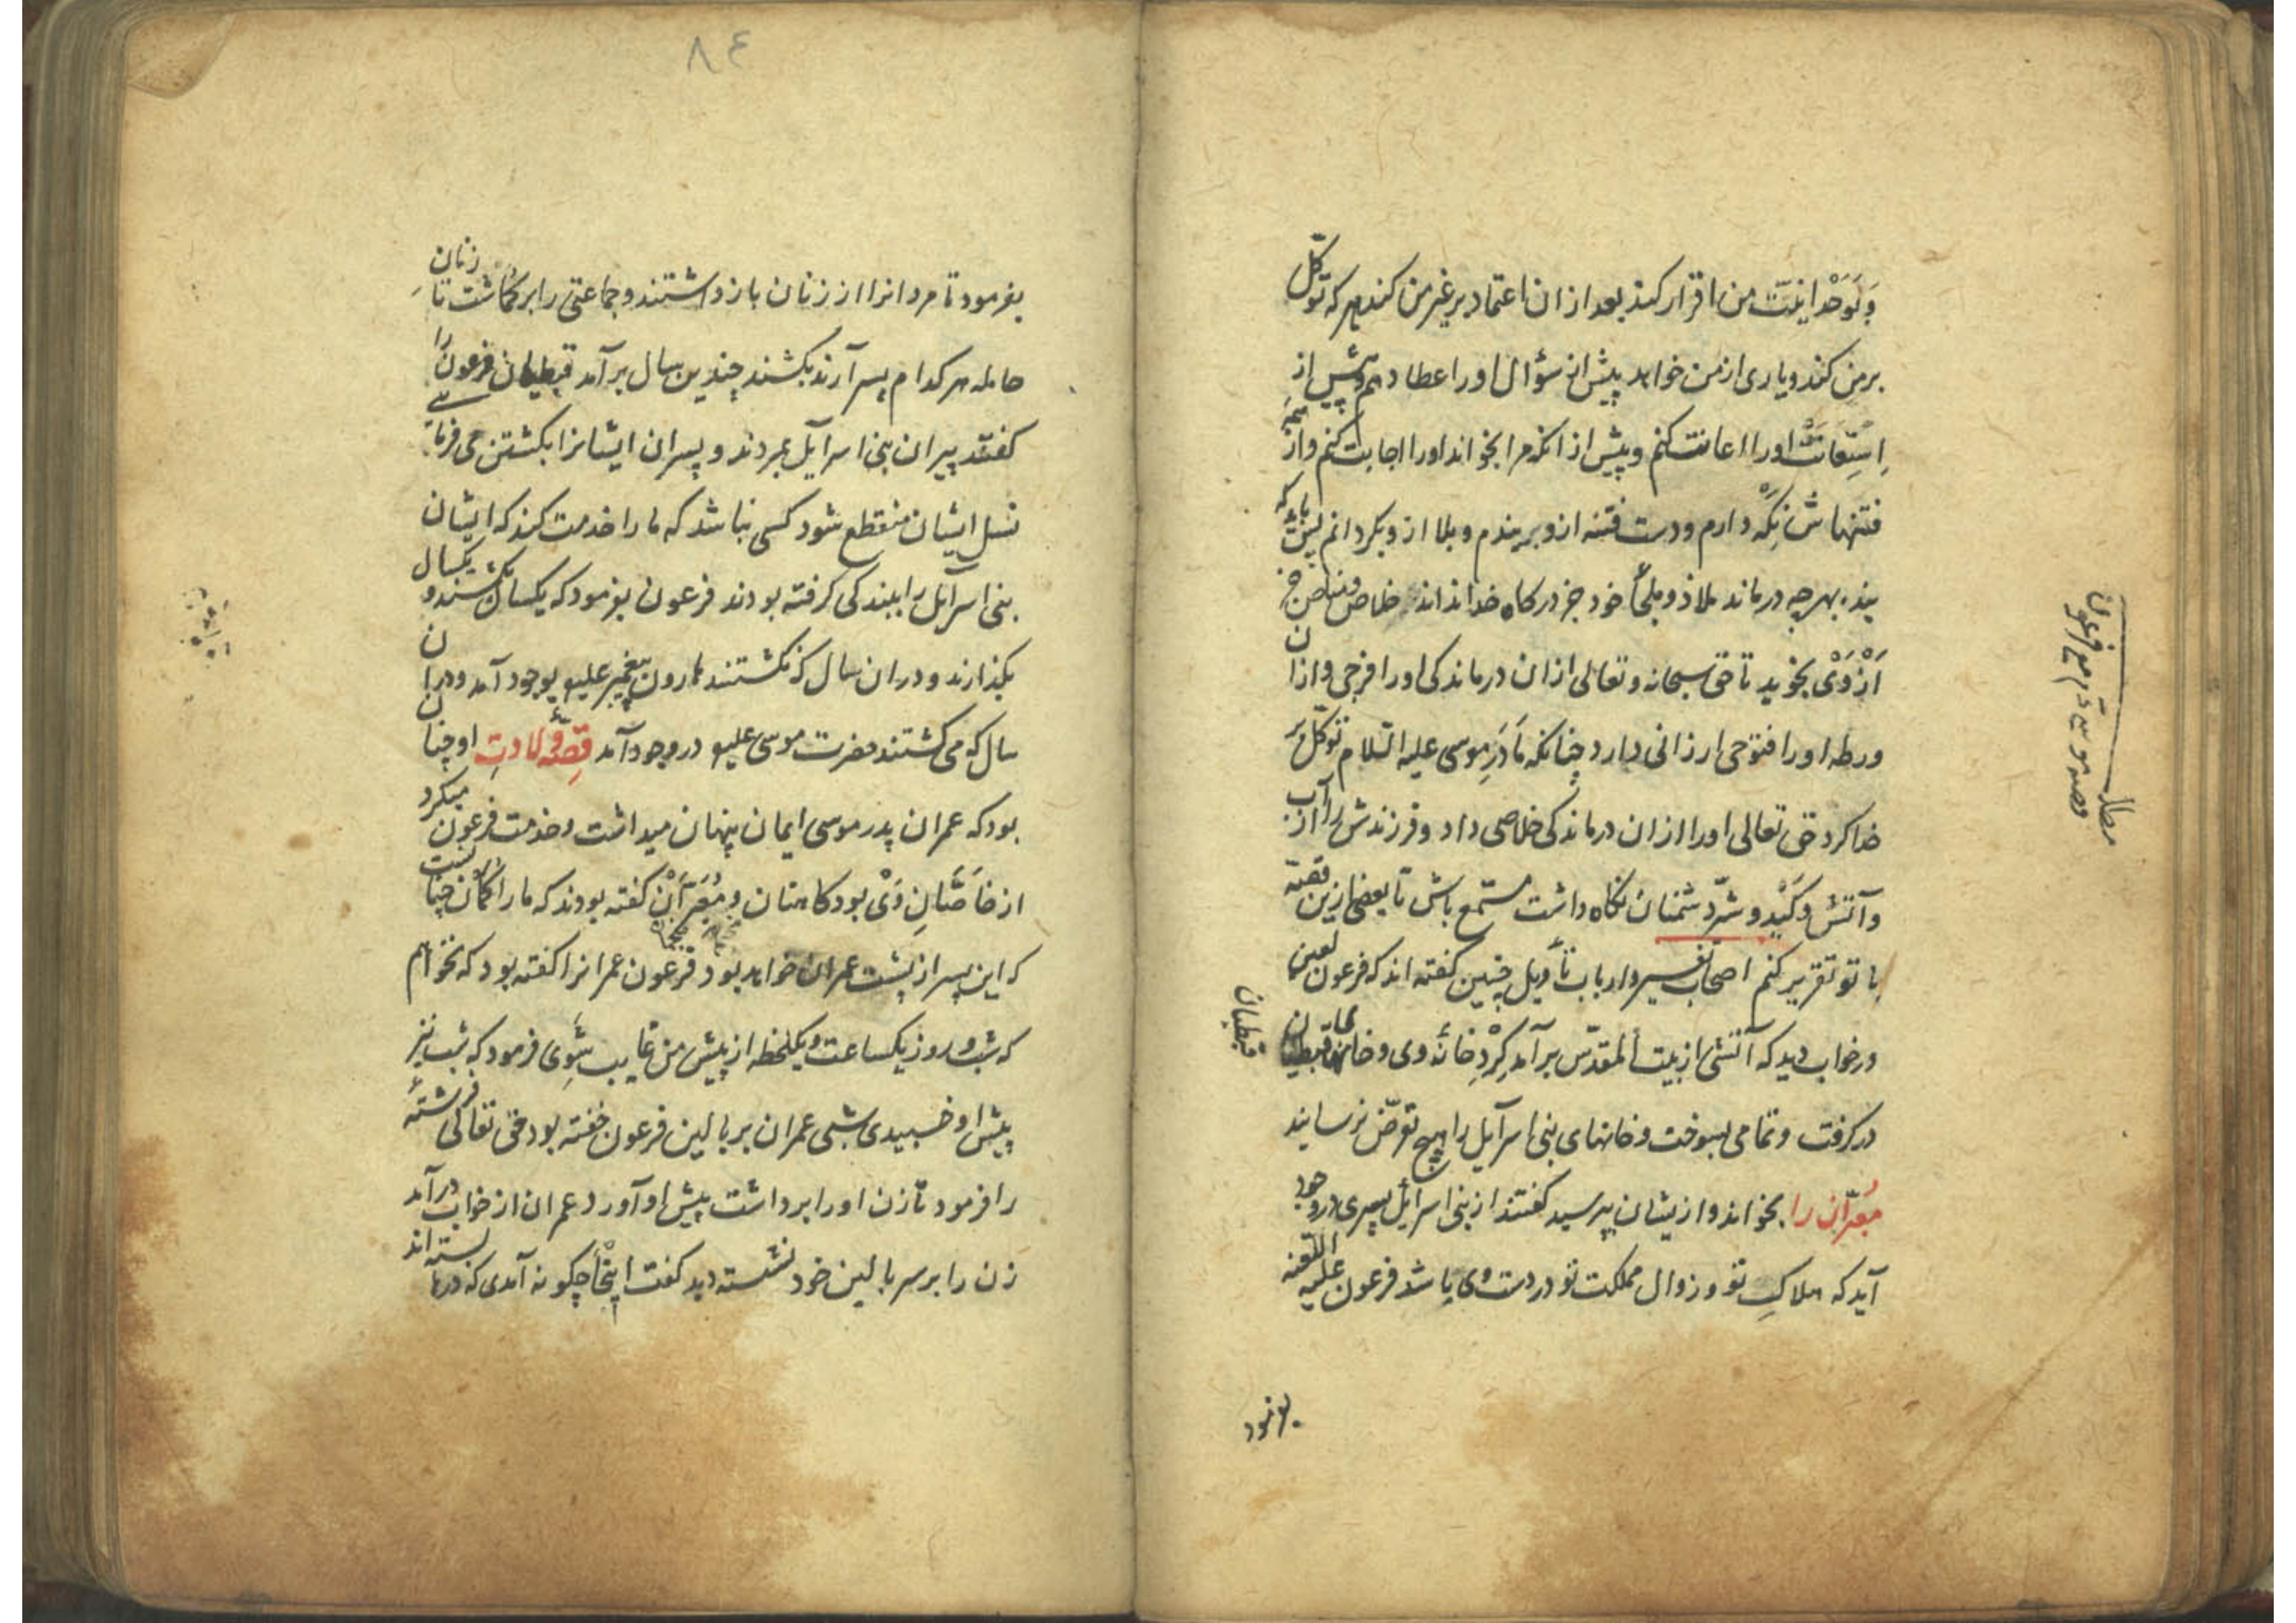 وبوحدانیّت من اقرار کند بعد ازان اعتماد بر غیر من کند هر که توکّل
بر من کند و یاری از من خواهد پیش از سؤال او را عطا دهم و پیش از
اِستِعانَت او را اعانت کنم و پیش از انکه مرا بخواند او را اجابت کنم و از همه
فتنهاش نِگَه دارم و دست فتنه ازو ببندم و بلا ازو بکردانم پس باید که
بنده بهر چه درماند ملاذ و ملجأ خود جز درکاه خدا نداند خلاص و مناص جز
اَزْ وَیْ نجوید تا حق سبحانه و تعالی ازان درماندکی او را فرجی و ازان
ورطه او را فتوحی ارزانی دارد چنانکه مادَرِ موسی علیه السّلام توکّل بر
خدا کرد حق تعالی او را ازان درماندکی خلاصی داد و فرزندش را از آب
و آتش و کَیْد و شرّ دشمنان نکاه داشت مستمع باش تا بعضی ازین قصّه
با تو تقریر کنم اصحاب تفسیر و ارباب تأویل چنین کفته اند که فرعون لعین
در خواب دید که آتشی از بیت المقدّس برآمد کِرْدِ خانهٔ وی و خانهای قبطیان
قبطیان
در کرفت و تمامی بسوخت و خانهای بنی اسرآیل را هیچ تعرّض نرسانید
مُعبّران را بخواند و ازیشان بپرسید کفتند از بنی اسرائیل پسری در وجود
آید که هلاکِ تو و زوال مملکت تو در دست وی باشد فرعون علیه اللعنه
بفرمود
مطلب
قصه موسی م مع فرعون
٨٤
بفرمود تا مردانرا از زنان باز داشتند و جماعتی را برکماشت تا زنان
حامله هر کدام پسر آرند بکشند چندین سال برآمد قبطیان فرعون را
کفتند پیران بنی اسرآیل بمردند و پسران ایشانرا بکشتن می فرمایی
نسل ایشان منقطع شود کسی نباشد که ما را خدمت کند که ایشان
بنی اسرآیل را ببندکی کرفته بودند فرعون بفرمود که یکسال بکشند و یکسال
بکذارند و دران سال که نکشتند هارون پیغمبر علیه بوجود آمد و دران
سال که می کشتند حضرت موسی علیه در وجود آمد قِصّهٔ ولادتِ او چنان
بود که عمران پدر موسی ایمان پنهان میداشت و خدمت فرعون میکرد
از خاصَّانِ وَیْ بود کاهنان و مُعبّرَان کفته بودند که ما را کمان چنانست
که این پسر از پشت عمران خواهد بود فرعون عمرانرا کفته بود که نخواهم
که شب و روز یکساعت و یکلحظه از پیش من غایب شوی فرمود که شب نیز
پیش او خسبیدی شبی عمران بر بالین فرعون خفته بود حق تعالی فرشتهٔ
را فرمود تا زن او را برداشت پیش او آورد عمران از خواب درآمد
زن را بر سر بالین خود نشسته دید کفت اینجا چکونه آمدی که درها بسته اند